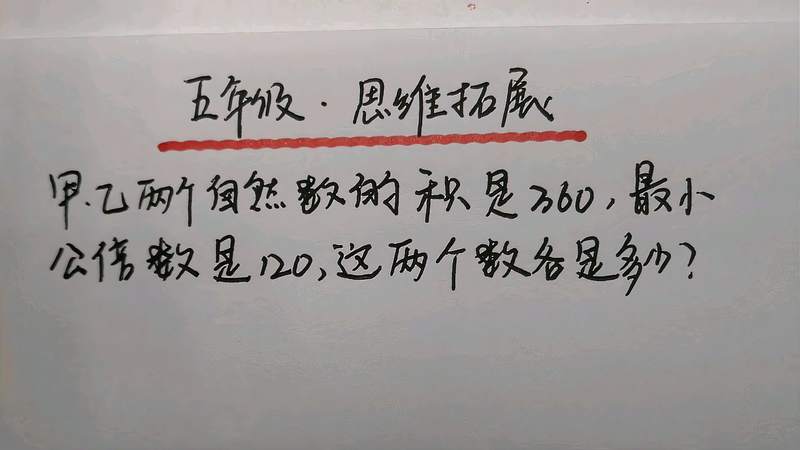 五年级·思维拓展
甲、乙两个自然数的积是360,最小
公倍数是120,这两个数各是多少?